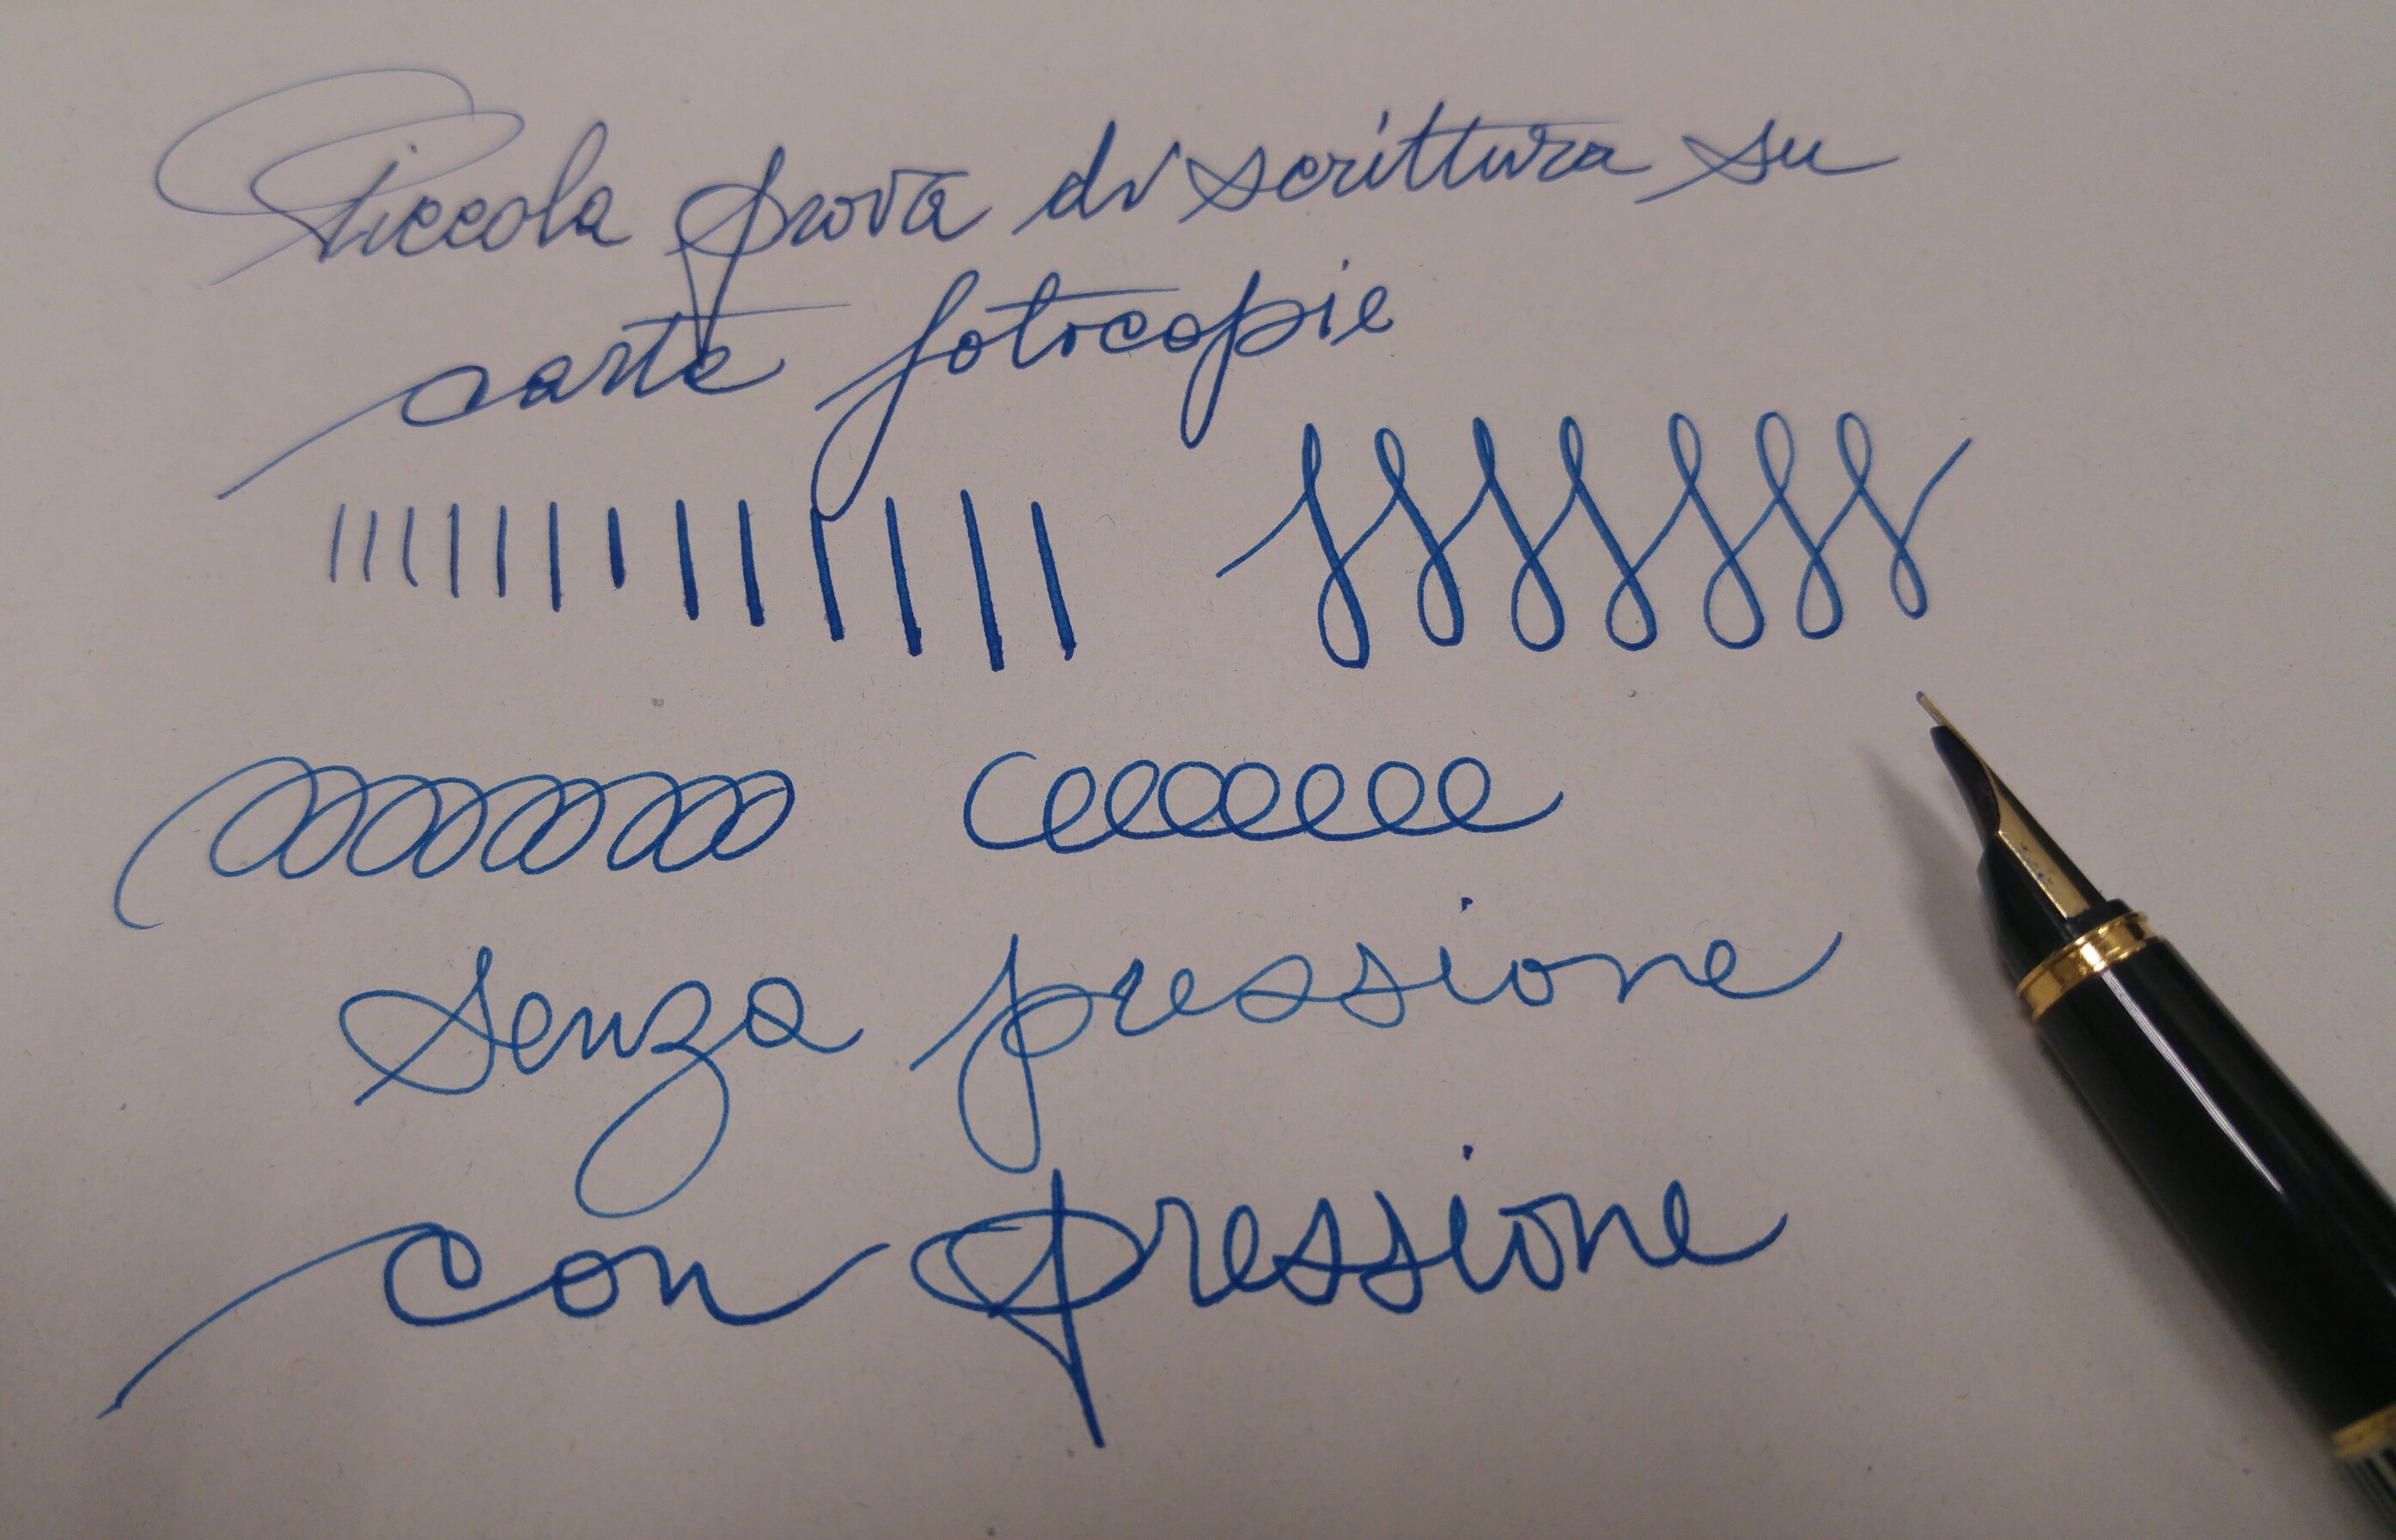 Piccola prova di scrittura su
carta fotocopie
Senza pressione
con pressione